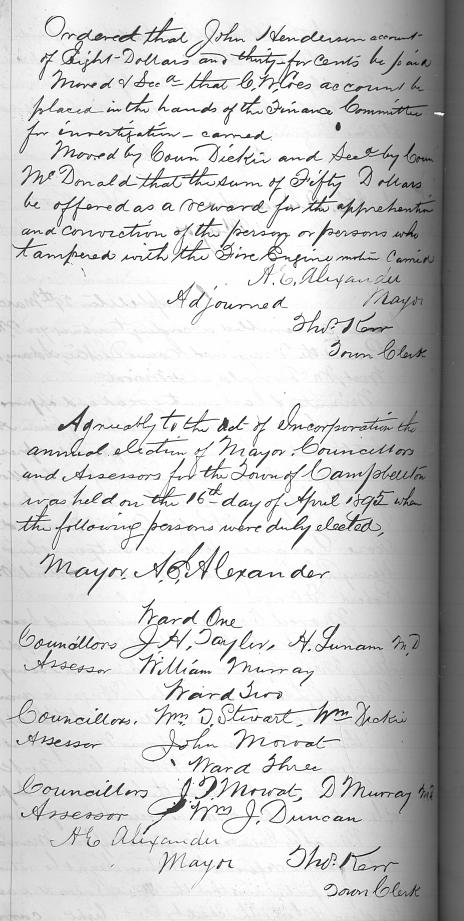 Ordered that John Henderson account
of Eight Dollars and thirty-for cents be paid
Moved & Secd that C. W. Coes account be
placed in the hands of the Finance Committee
for investigation - carried
Moved by Coun Dickie and Secd by Coun
McDonald that the sum of Fifty Dollars
be offered as a reward for the apprehention
and conviction of the person or persons who
tampered with the Fire Engine motion carried
A. E. Alexander
Adjourned Mayor
Thos. Kerr
Town Clerk
Agreuably to the act of Incorporation the
annual election of Mayor, Councillors
and Assessors for the Town of Campbellton
was held on the 16th day of April 1895 when
the following persons were duly elected,
Mayor. A. E. Alexander
Ward One
Councillors J. H. Taylor, H. Lunam M.D
Assessor William Murray
Ward Two
Councillors. Wm D. Stewart, Wm Dickie
Assessor John Mowat
Ward Three
Councillors J. T. Mowat, D Murray MD
Assessor Wm J. Duncan
A E Alexander
Mayor Thos. Kerr
Town Clerk